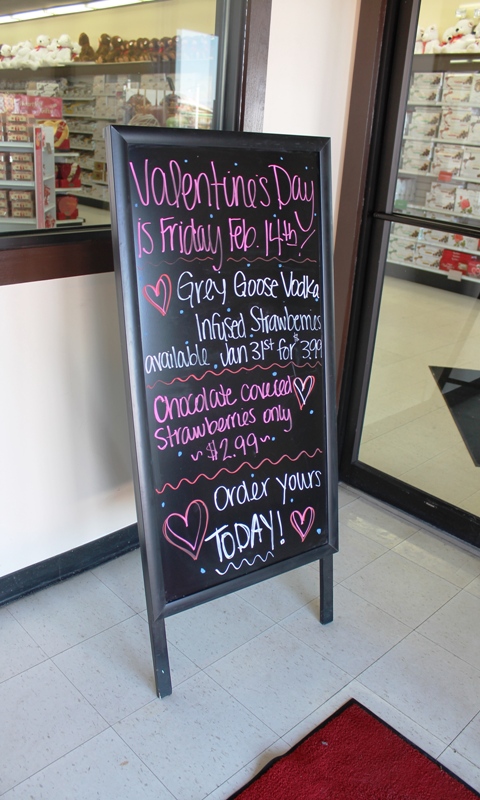 Valentine's Day
is Friday Feb. 14th!
Grey Goose Vodka
Infused Strawberries
available Jan 31st for $3.99
Chocolate covered
Strawberries only
~$2.99~
Order yours
TODAY!